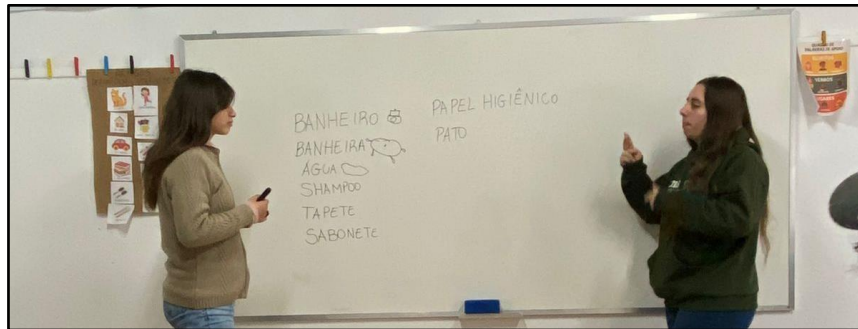 BANHEIRO
BANHEIRA
ÁGUA
SHAMPOO
TAPETE
SABONETE
PAPEL HIGIÊNICO
PATO